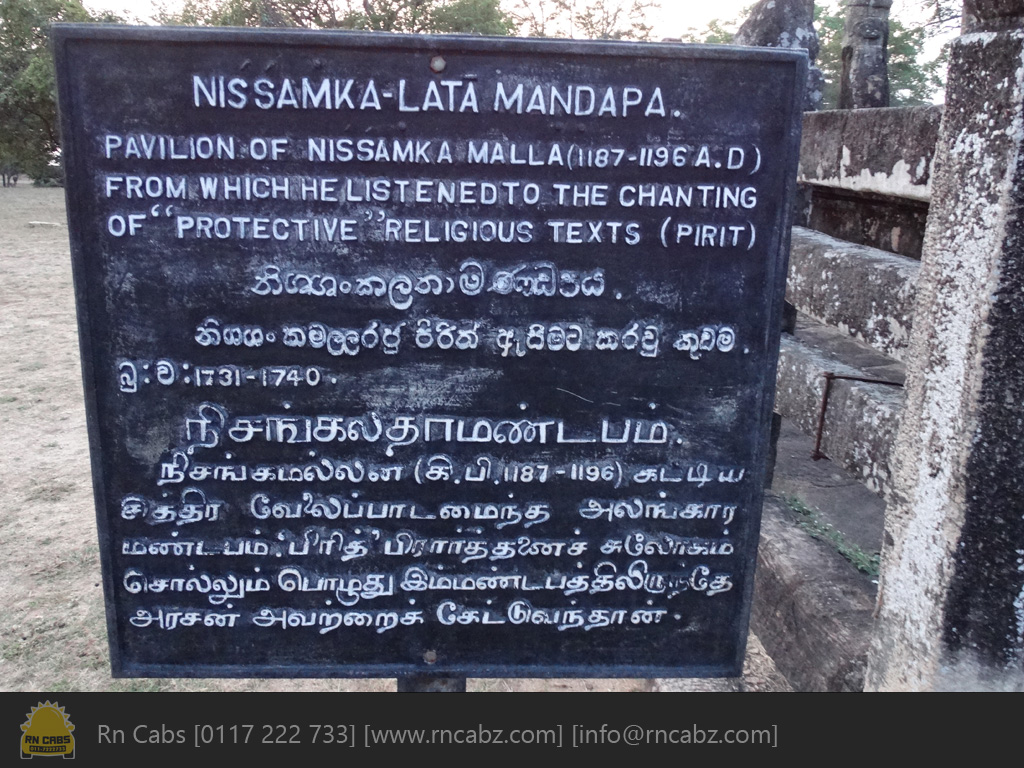 NISSAMKA-LATĀ MANDAPA.
PAVILION OF NISSAMKA MALLA (1187-1196 A.D)
FROM WHICH HE LISTENED TO THE CHANTING
OF "PROTECTIVE" RELIGIOUS TEXTS (PIRIT)
නිශ්ශංකලතාමණ්ඩපය.
නිශ්ශංකමල්ලරජු පිරිත් ඇසීමට කරවූ කුටම.
බු:ව:1731-1740.
நிசங்கலதாமண்டபம்.
நிசங்கமல்லன் (கி.பி.1187-1196) கட்டிய
சித்திர வேலைப்பாடமைந்த அலங்கார
மண்டபம். 'பிரித்' பிரார்த்தனைச் சுலோகம்
சொல்லும் பொழுது இம்மண்டபத்திலிருந்தே
அரசன் அவற்றைக் கேட்டுவந்தான்.
RN CABS
0117222733
Rn Cabs [0117 222 733] [www.rncabz.com] [info@rncabz.com]